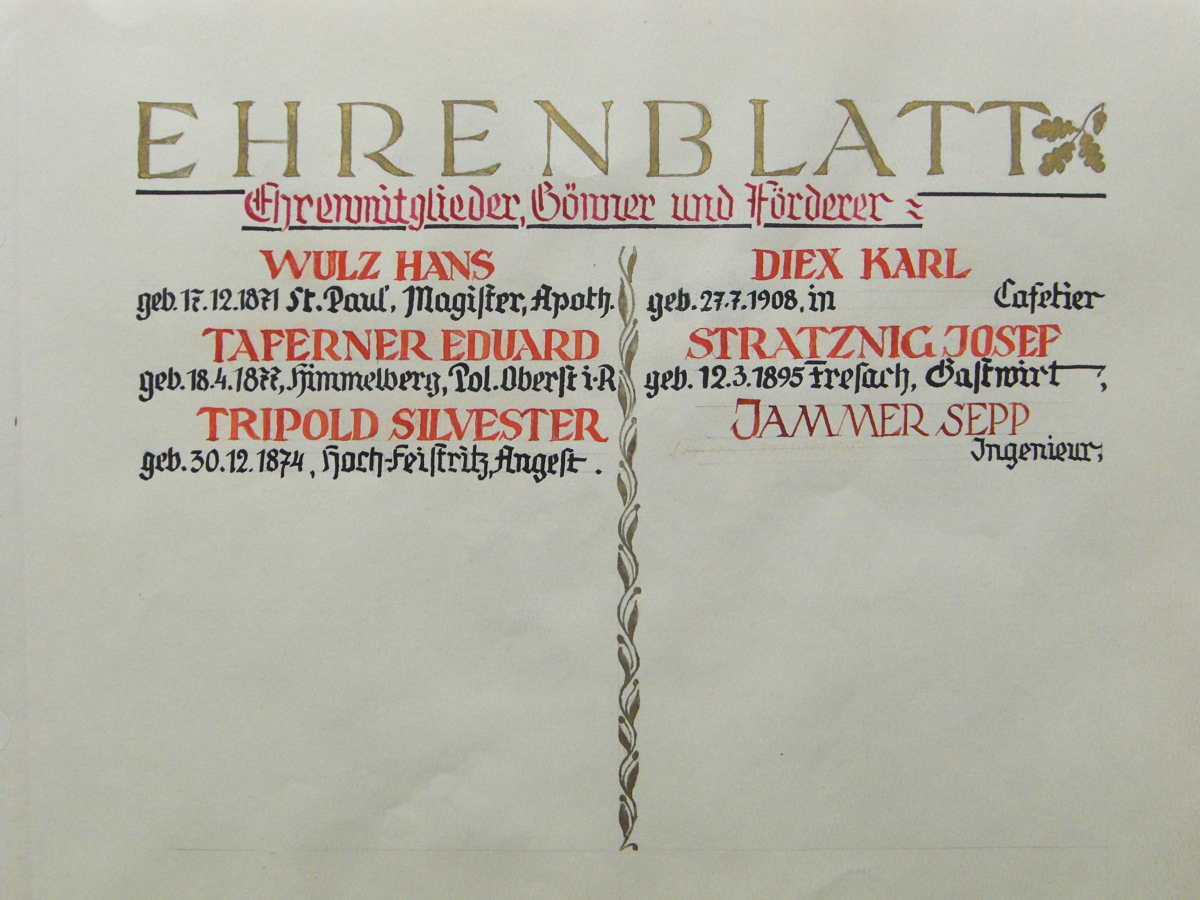 EHRENBLATT
Ehrenmitglieder, Gönner und Förderer
WULZ HANS
geb. 17.12.1871 St. Paul, Magister, Apoth.
TAFERNER EDUARD
geb. 18.4.1877, Himmelberg, Pol. Oberst i. R
TRIPOLD SILVESTER
geb. 30.12.1874, Hoch-Feistritz, Angest.
DIEX KARL
geb. 27.7.1908, in Cafetier
STRATZNIG JOSEF
geb. 12.3.1895 Fresach, Gastwirt,
JAMMER SEPP
Ingenieur;